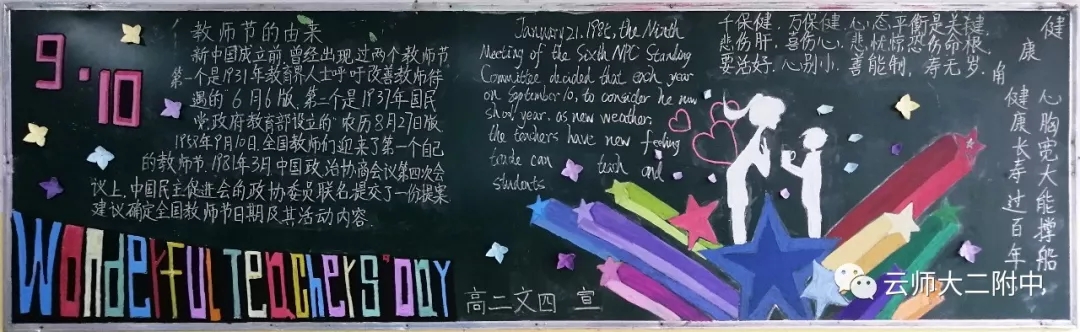 9·10
教师节的由来
新中国成立前,曾经出现过两个教师节
第一个是1931年教育界人士呼吁改善教师待
遇的"6月6版,第二个是1937年国民
党政府教育部设立的"农历8月27日版
1985年9月10日,全国教师们迎来了第一个自己
的教师节.1981年3月,中国政治协商会议第四次会
议上,中国民主促进会的政协委员联名提交了一份提案
建议确定全国教师节日期及其活动内容.
Wonderful Teachers' Day
January 21, 1985, the Ninth
Meeting of the Sixth NPC Standing
Committee decided that each year
on September 10, to consider he new
shool year, as new weather.
the teachers have new feeling
trade can teach and
students
高二文四 宣
千保健,万保健,心态平衡是关键,
悲伤肝,喜伤心,悲忧惊恐伤命根,
要治好,心别小,善能制,寿无岁.
健康角
心胸宽大能撑船
健康长寿过百年
云师大二附中